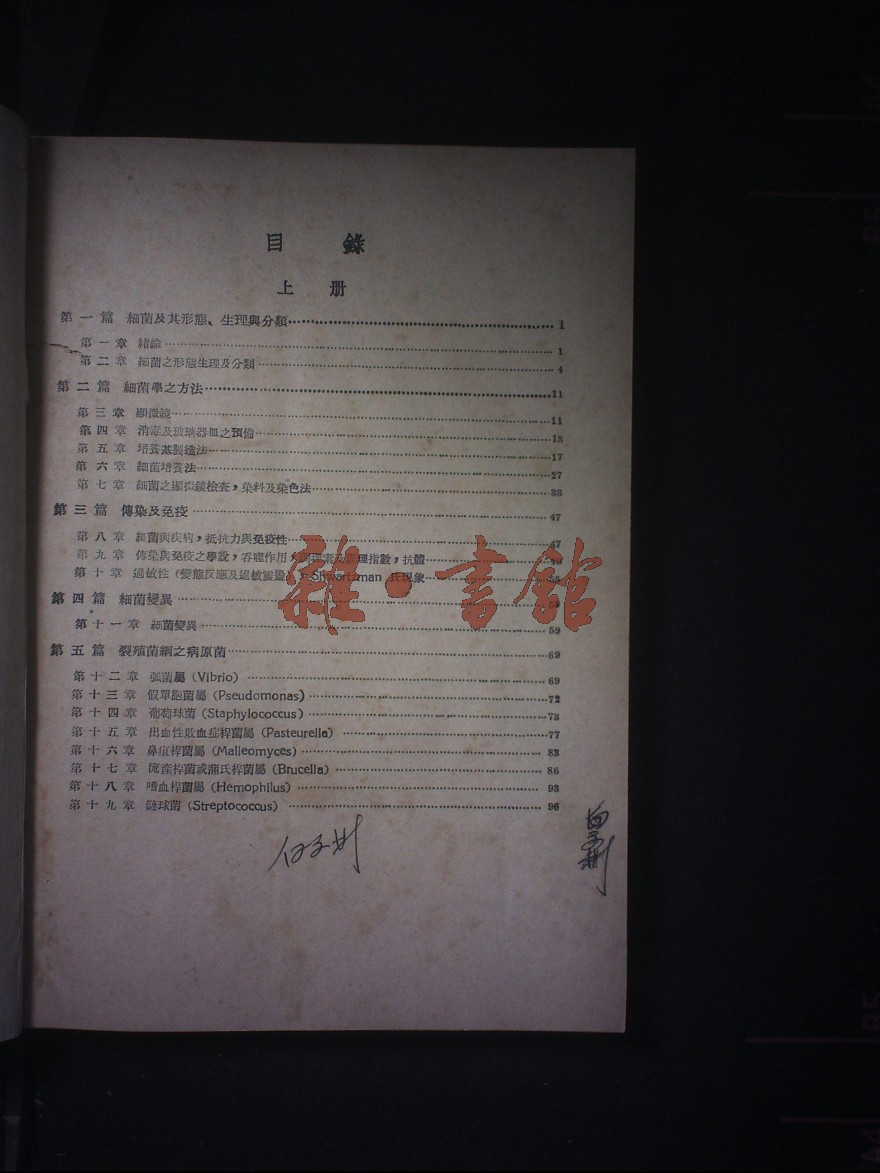 目 錄
上 册
第一篇 細菌及其形態、生理與分類 1
第一章 緒論 1
第二章 細菌之形態生理及分類 4
第二篇 細菌學之方法 11
第三章 顯微鏡 11
第四章 消毒及玻璃器皿之預備 13
第五章 培養基製造法 17
第六章 細菌培養法 27
第七章 細菌之顯微鏡檢查，染料及染色法 33
第三篇 傳染及免疫 47
第八章 細菌與疾病，抵抗力與免疫性 47
第九章 傳染與免疫之學說，吞噬作用，調理素及調理指數，抗體
第十章 過敏性（變態反應及過敏震盪），Shwartzman 氏現象 55
第四篇 細菌變異 59
第十一章 細菌變異 59
第五篇 裂殖菌綱之病原菌 69
第十二章 弧菌屬（Vibrio） 69
第十三章 假單胞菌屬（Pseudomonas） 72
第十四章 葡萄球菌（Staphylococcus） 73
第十五章 出血性敗血症桿菌屬（Pasteurella） 77
第十六章 鼻疽桿菌屬（Malleomyces） 83
第十七章 流產桿菌或蒲氏桿菌屬（Brucella） 86
第十八章 嗜血桿菌屬（Hemophilus） 93
第十九章 鏈球菌（Streptococcus） 96
雜·書館